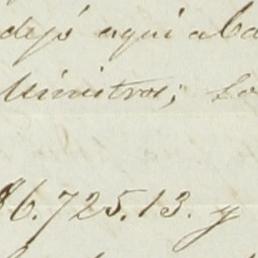 dejó aqui aba
Ministros; Lo
$6.725.13. y